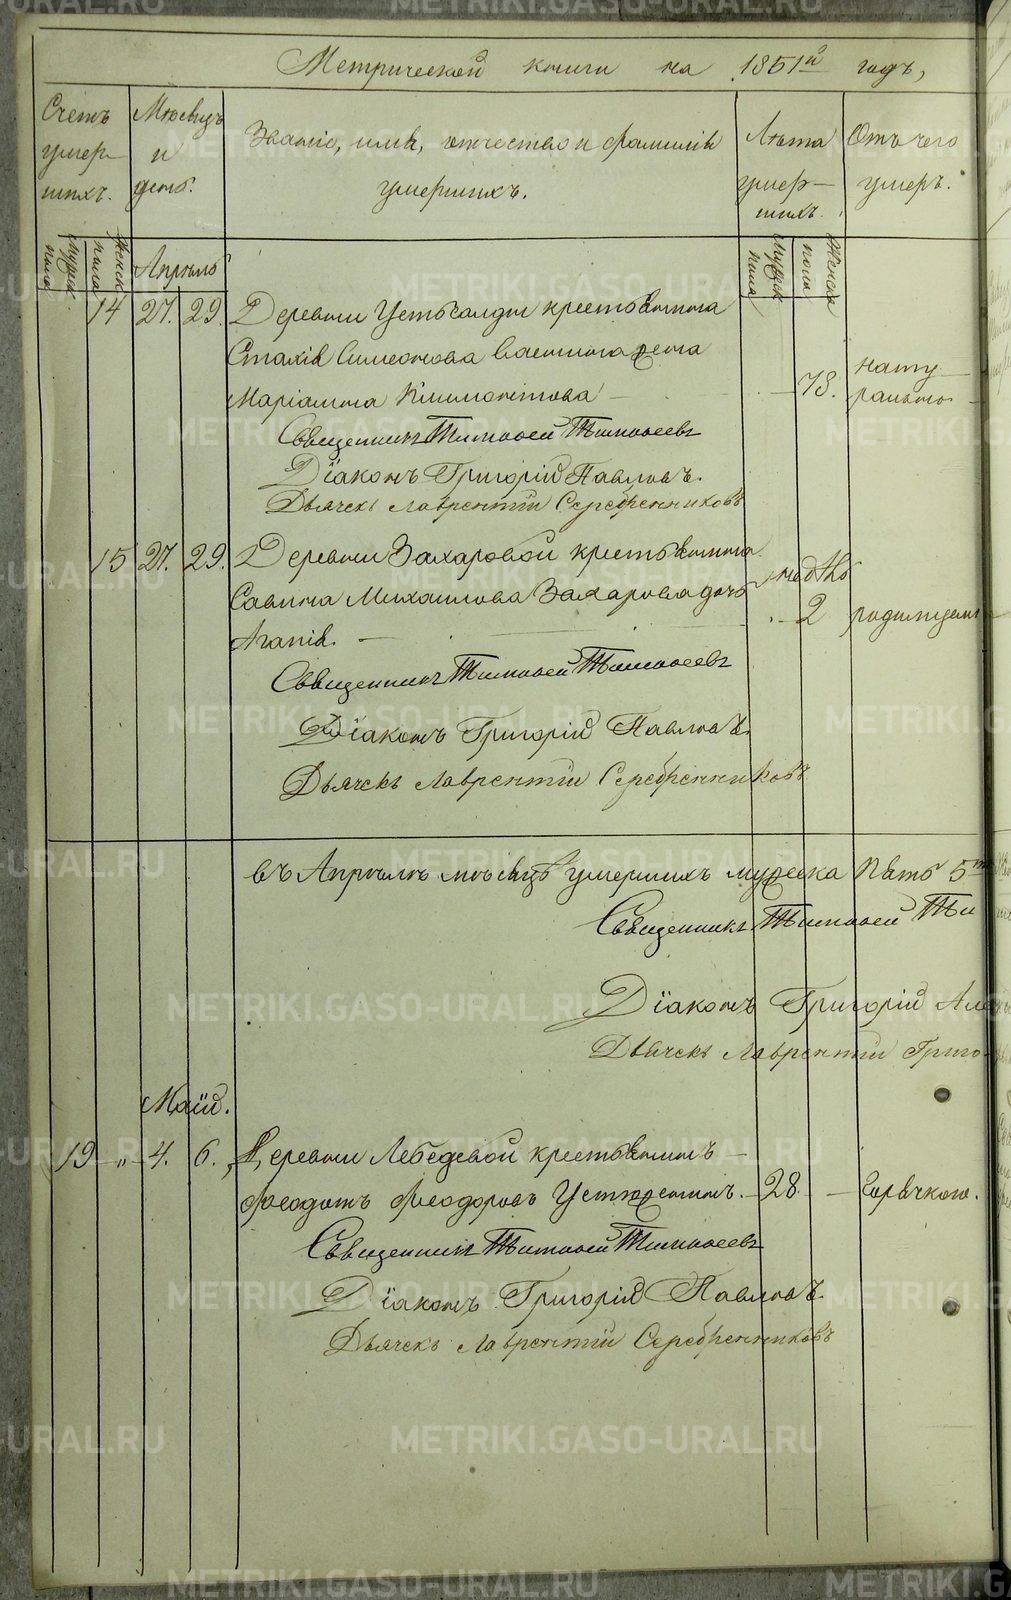 Метрической книги на 1851й годъ,
Счетъ умер-шихъ.
Мѣсяцъ и день.
Званіе, имя, отчество и фамилія умершихъ.
Лѣта умер-шихъ.
Отъ чего умеръ.
Мужск. пола
Женск. пола
Апрѣль
Мужск. пола
Женск. пола
14 27. 29. Деревни Устьсалды крестьянина
Стахія Симеонова Васнина жена
Маріамна Климонтова — 78. натурально —
Священникъ Тимоѳей Тимоѳеевъ
Діаконъ Григорій Павловъ.
Дьячекъ Лаврентій Серебренниковъ
15 27. 29. Деревни Захаровой крестьянина
Савина Михаилова Захарова дочь недѣль
Агапія. — 2 родимцемъ
Священникъ Тимоѳей Тимоѳеевъ
Діаконъ Григорій Павловъ.
Дьячекъ Лаврентій Серебренниковъ
въ Апрѣлѣ мѣсяцѣ умершихъ мужеска пять 5
Священникъ Тимоѳей Ти
Діаконъ Григорій
Дьячекъ Лаврентій Григо
Маій.
19 „ 4. 6. Деревни Лебедевой крестьянинъ —
Ѳеодотъ Ѳеодоровъ Устюжанинъ. — 28 — горячкою.
Священникъ Тимоѳей Тимоѳеевъ
Діаконъ Григорій Павловъ.
Дьячекъ Лаврентій Серебренниковъ
METRIKI.GASO-URAL.RU